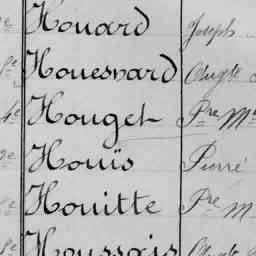 Houard Joseph
Houesnard Aug^te
Houget P^re M
Houïs Pierre
Houitte P^re M
Houssais Aug^te